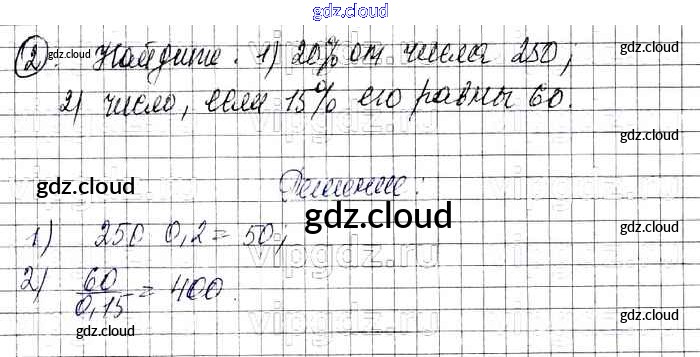 gdz.cloud
② Найдите: 1) 20% от числа 250;
gdz.cloud
gdz.cloud
2) число, если 15% его равны 60.
gdz.cloud
gdz.cloud
Решение:
gdz.cloud
gdz.cloud
1) 250 0,2 = 50;
vipgdz.ru
2) 60/0,15 = 400.
gdz.cloud
gdz.cloud
gdz.cloud